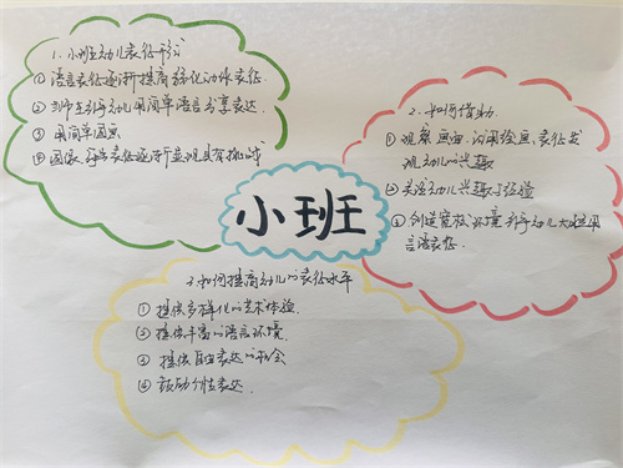 1. 小班幼儿表征形式
① 语言表征逐渐提高弱化动作表征.
② 教师在引导幼儿用简单语言分享表达.
③ 用简单图画
④ 图像、符号表征逐渐开始具有
小班
2. 如何借助
① 观察画面,运用绘画、表征发
现幼儿的兴趣
② 关注幼儿兴趣与经验
③ 创造宽松环境 引导幼儿大胆用
言语表征.
3 如何提高幼儿的表征水平
① 提供多样化的艺术体验.
② 提供丰富的语言环境.
③ 提供自由表达的机会
④ 鼓励个性表达.